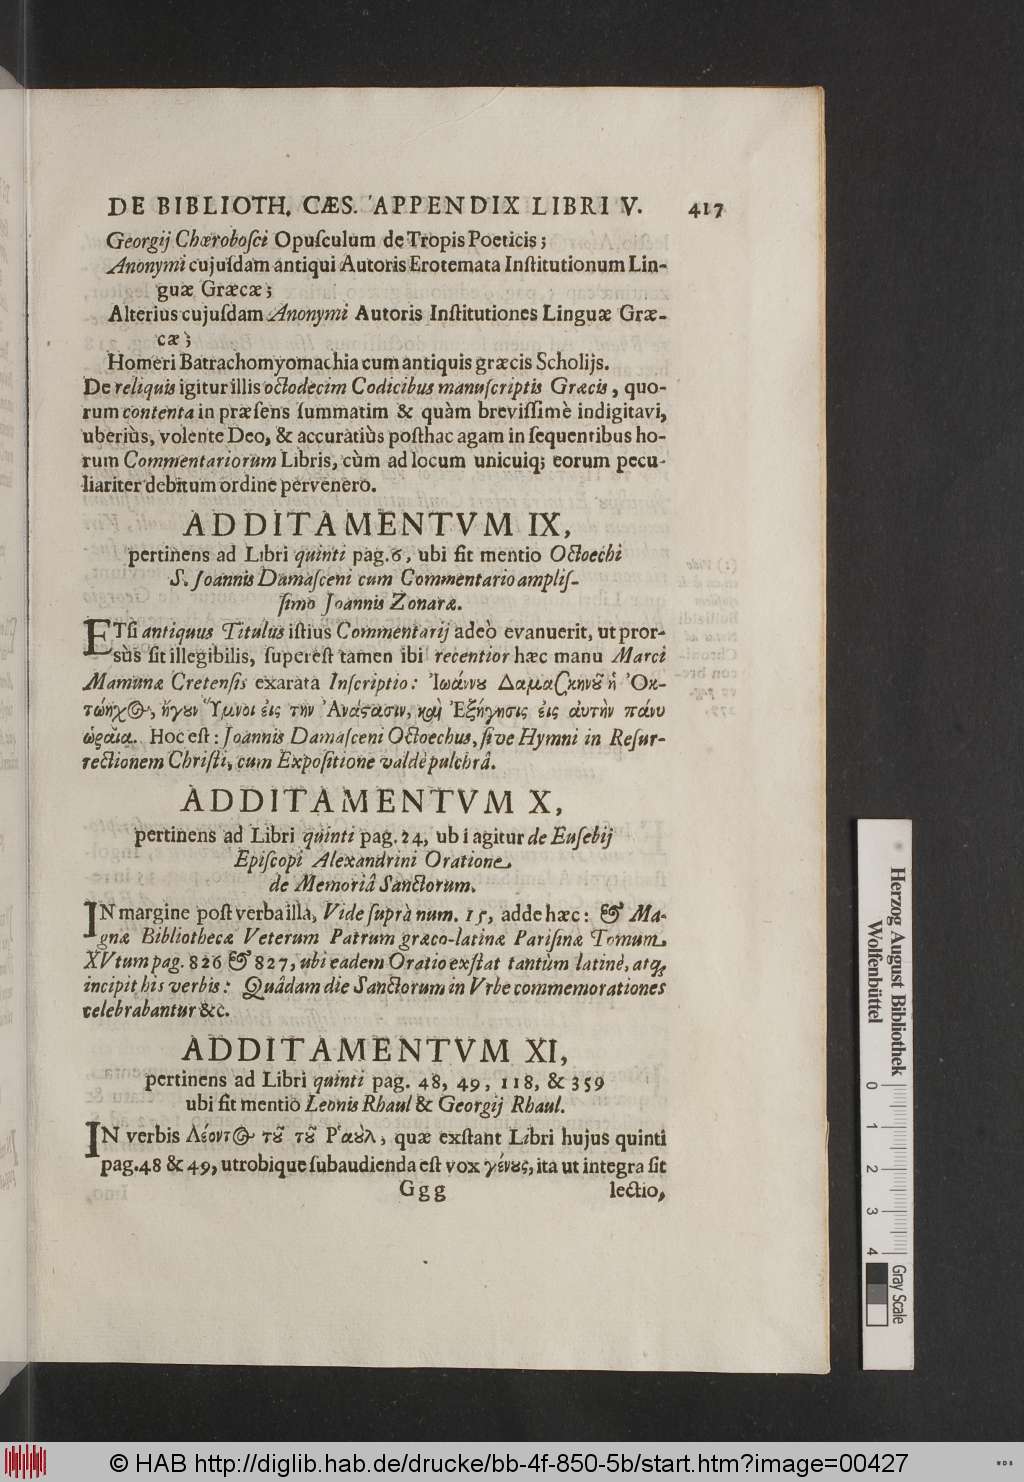 DE BIBLIOTH. CÆS. APPENDIX LIBRI V. 417
Georgij Chœroboſci Opuſculum de Tropis Poeticis;
Anonymi cujuſdam antiqui Autoris Erotemata Inſtitutionum Lin-
guæ Græcæ;
Alterius cujuſdam Anonymi Autoris Inſtitutiones Linguæ Græ-
cæ;
Homeri Batrachomyomachia cum antiquis græcis Scholijs.
De reliquis igitur illis octodecim Codicibus manuſcriptis Græcis, quo-
rum contenta in præſens ſummatim & quàm breviſſimè indigitavi,
uberiùs, volente Deo, & accuratiùs poſthac agam in ſequentibus ho-
rum Commentariorum Libris, cùm ad locum unicuiq; eorum pecu-
liariter debitum ordine pervenero.
ADDITAMENTVM IX,
pertinens ad Libri quinti pag. 6, ubi fit mentio Octoechi
S. Joannis Damaſceni cum Commentario ampliſ-
ſimo Joannis Zonaræ.
ETſi antiquus Titulus iſtius Commentarij adeò evanuerit, ut pror-
sùs ſit illegibilis, ſupereſt tamen ibi recentior hæc manu Marci
Mamunæ Cretenſis exarata Inſcriptio: Ἰωάννȣ Δαμασκηνȣ͂ ἡ Ὀκ-
τώηχ⊙, ἤγȣν Ὕμνοι εἰς τὴν Ἀνάϛασιν, καὶ Ἐξήγησις εἰς αὐτὴν πάνυ
ὡραῖα. Hoc eſt: Joannis Damaſceni Octoechus, ſive Hymni in Reſur-
rectionem Chriſti, cum Expoſitione valdè pulchrâ.
ADDITAMENTVM X,
pertinens ad Libri quinti pag. 24, ubi agitur de Euſebij
Epiſcopi Alexandrini Oratione
de Memoriâ Sanctorum.
IN margine poſt verba illa, Vide ſuprà num. 15, adde hæc: & Ma-
gnæ Bibliothecæ Veterum Patrum græco-latinæ Pariſinæ Tomum
XVtum pag. 826 & 827, ubi eadem Oratio exſtat tantùm latinè, atq;
incipit his verbis: Quâdam die Sanctorum in Vrbe commemorationes
celebrabantur &c.
ADDITAMENTVM XI,
pertinens ad Libri quinti pag. 48, 49, 118, & 359
ubi fit mentio Leonis Rhaul & Georgij Rhaul.
IN verbis Λέοντ⊙ τȣ͂ τȣ͂ Ῥαȣλ, quæ exſtant Libri hujus quinti
pag. 48 & 49, utrobique ſubaudienda eſt vox γένȣς, ita ut integra ſit
Ggg lectio,
Herzog August Bibliothek
Wolfenbüttel
0 1 2 3 4
Gray Scale
© HAB http://diglib.hab.de/drucke/bb-4f-850-5b/start.htm?image=00427